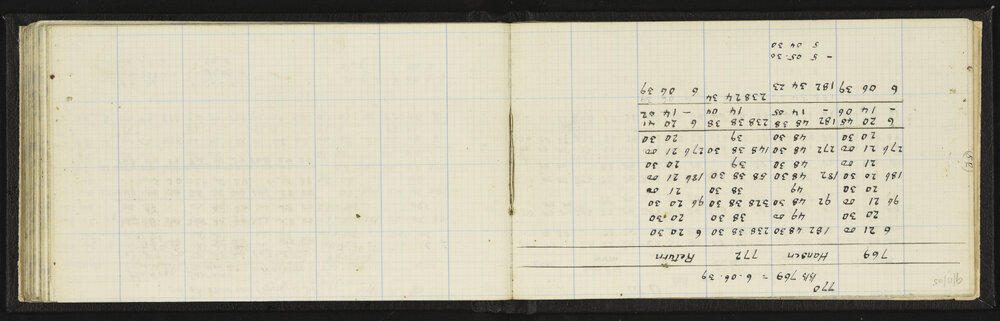 9/11/05
770
BB 769 = 6.06.39
769 Hansen 772 Return
6 21 00 182 48 30 238 38 30 6 20 30
20 30 49 00 38 30 20 30
96 21 00 92 48 30 328 38 30 96 20 30
20 30 49 38 30 21 00
186 20 30 182 48 30 58 38 30 186 21 00
21 00 48 30 39 20 30
276 21 00 272 48 30 148 38 30 276 21 00
20 30 48 30 39 20 30
6 20 45 182 48 38 238 38 38 6 20 41
- 14 06 - 14 05 14 04 - 14 02
6 06 39 182 34 23 238 24 34 6 06 39
- 5 05.30
5 04 30